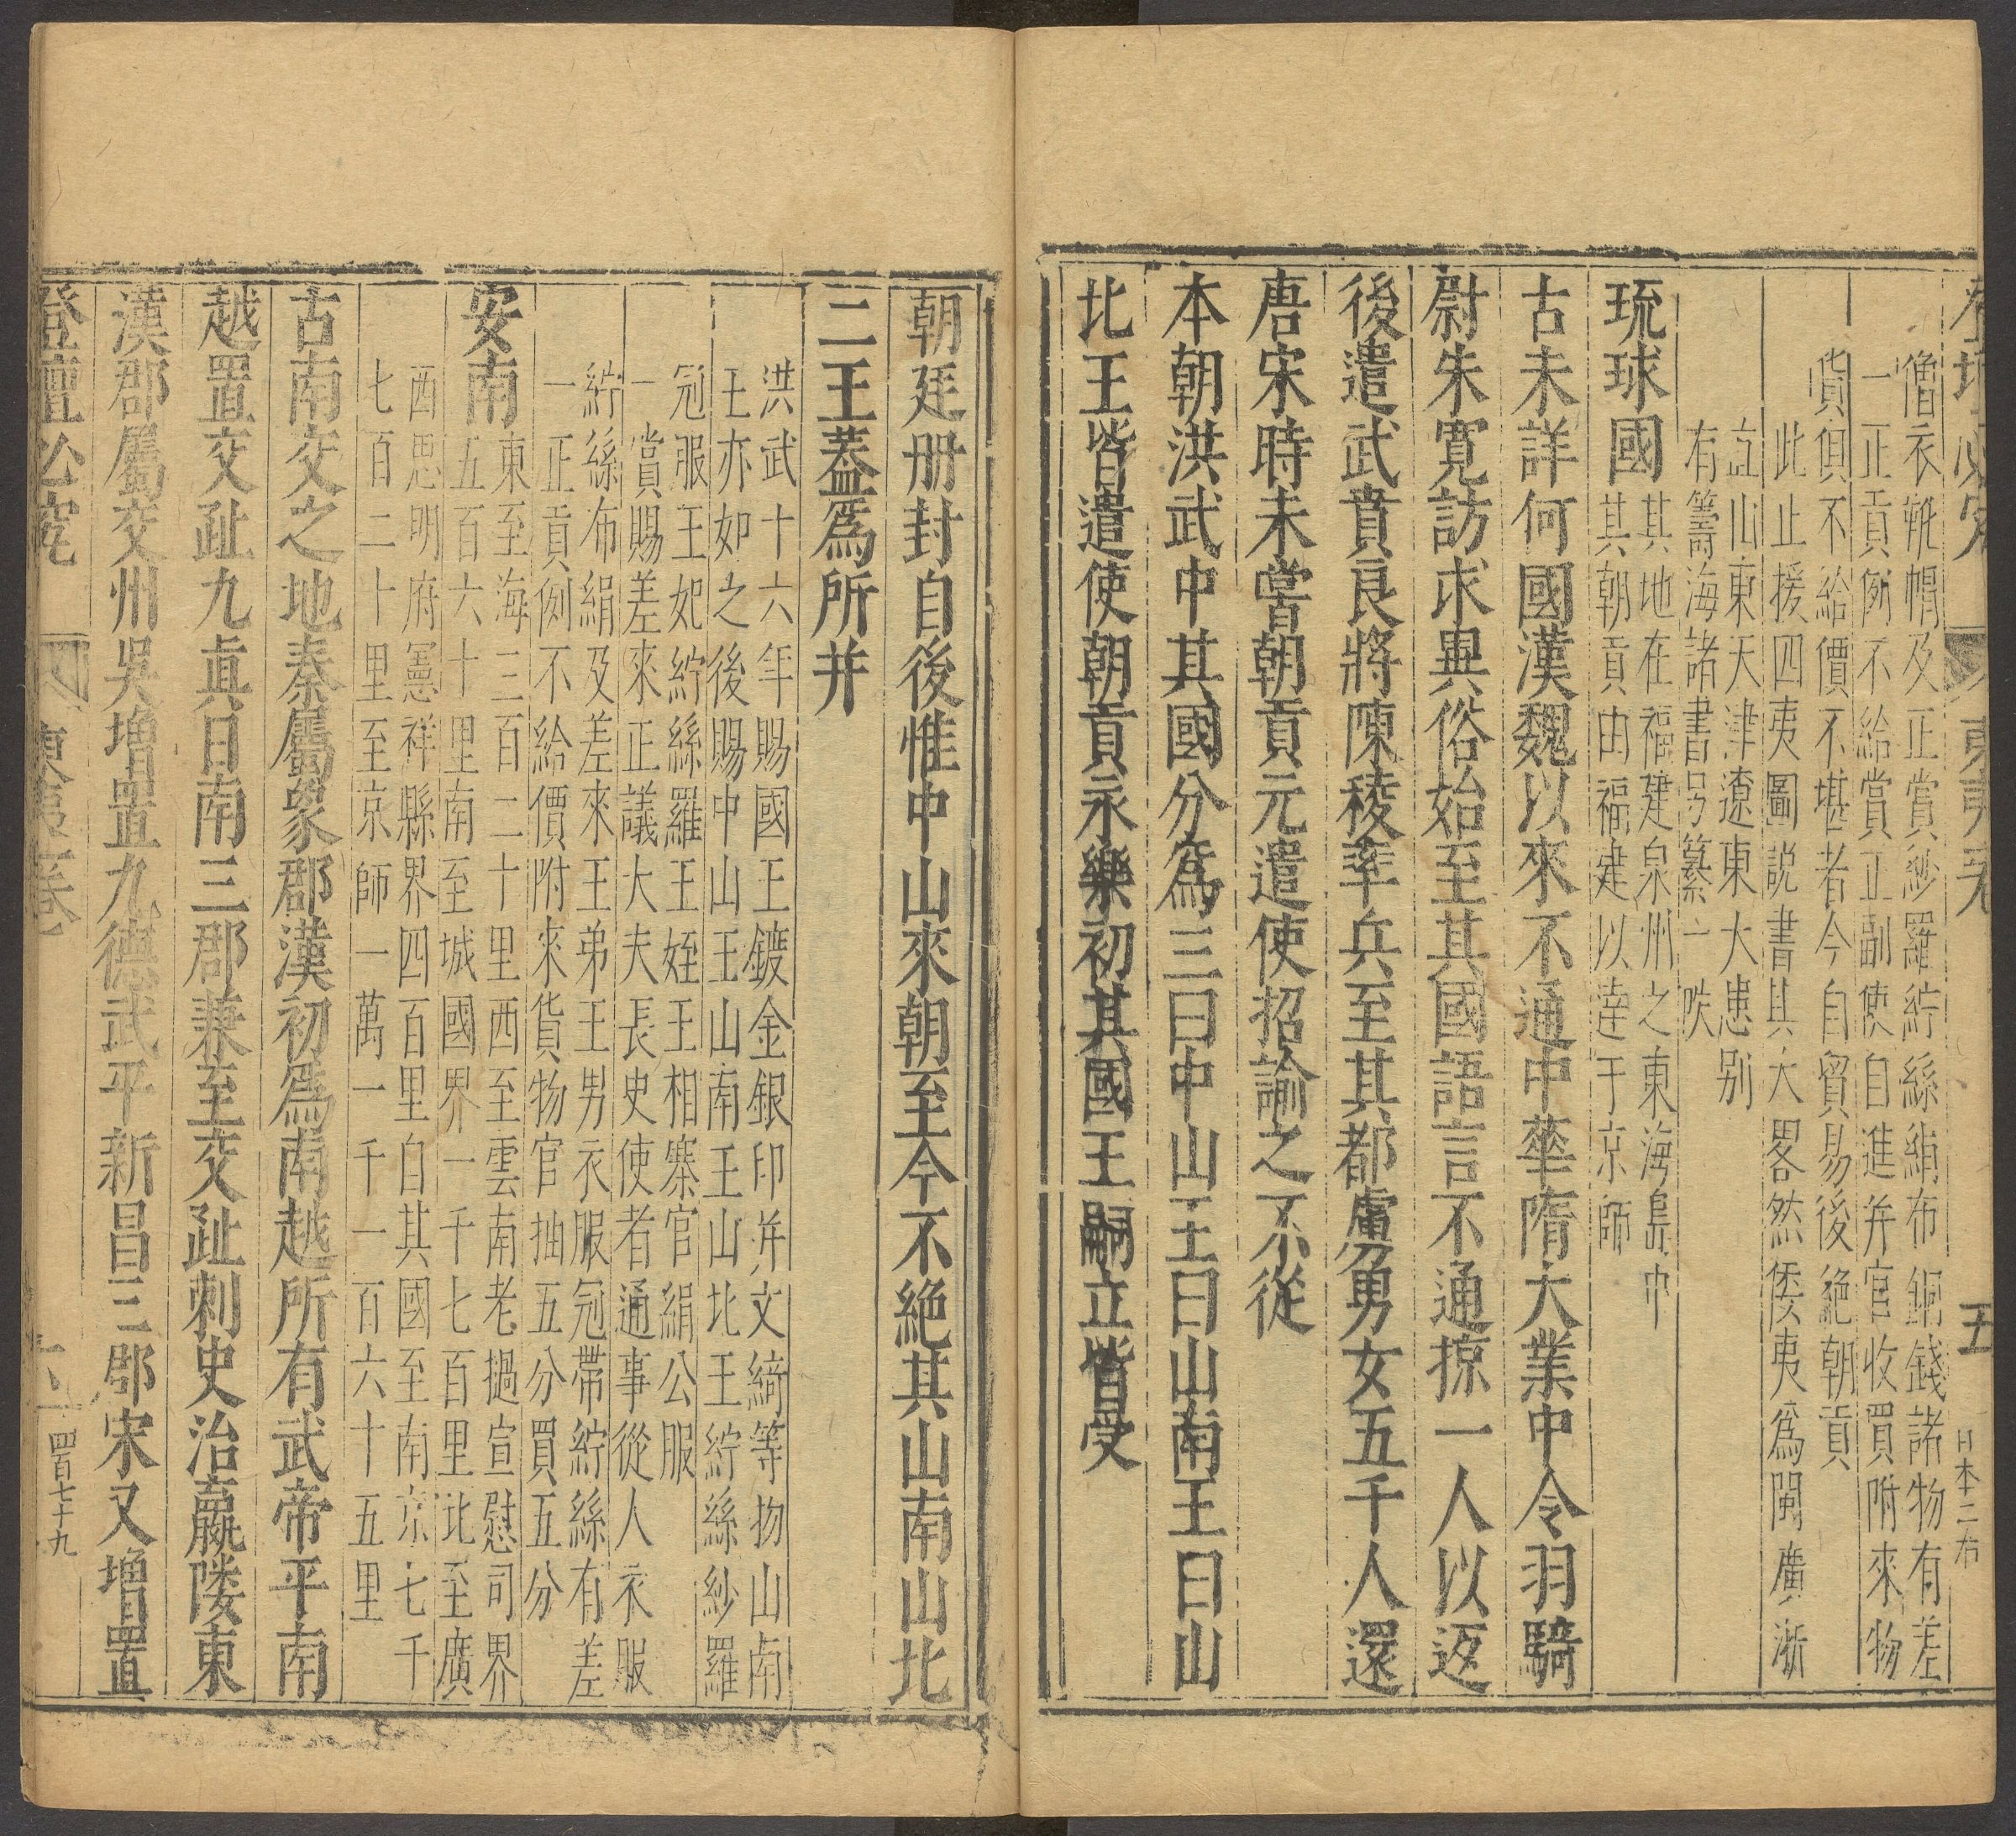 僧衣靴帽及正賞紗羅紵絲絹布銅錢諸物有差
一正貢例不給賞正副使自進并官收買附來物
貨俱不給價不堪者今自貿易後絕朝貢
此止援四夷圖說書其大畧然倭夷爲閩廣浙
直山東天津遼東大患别
有籌海諸書另纂一帙
琉球國
其地在福建泉州之東海島中
其朝貢由福建以達于京師
古未詳何國漢魏以來不通中華隋大業中令羽騎
尉朱寛訪求異俗始至其國語言不通掠一人以返
後遣武賁良將陳稜率兵至其都虜男女五千人還
唐宋時未嘗朝貢元遣使招諭之不從
本朝洪武中其國分爲三曰中山王曰山南王曰山
北王皆遣使朝貢永樂初其國王嗣立皆受
五
日本二右
朝廷册封自後惟中山來朝至今不絶其山南山北
二王蓋爲所并
洪武十六年賜國王鍍金銀印并文綺等物山南
王亦如之後賜中山王山南王山北王紵絲紗羅
冠服王妃紵絲羅王姪王相寨官絹公服
一賞賜差來正議大夫長史使者通事從人衣服
紵絲布絹及差來王弟王男衣服冠帶紵絲有差
一正貢例不給價附來貨物官抽五分買五分
安南
東至海三百二十里西至雲南老撾宣慰司界
五百六十里南至城國界一千七百里北至廣
西思明府憑祥縣界四百里自其國至南京七千
七百二十里至京師一萬一千一百六十五里
古南交之地秦屬象郡漢初爲南越所有武帝平南
越置交趾九眞日南三郡兼至交趾刺史治羸陵東
漢郡屬交州吳增置九德武平新昌三郡宋又增置
登壇必究
東夷二卷
四百七十九